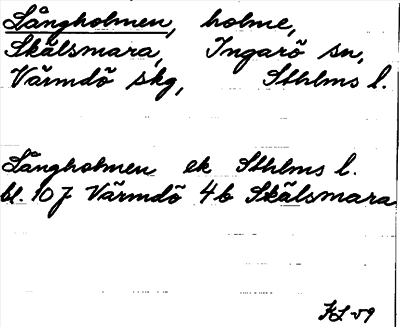 Långholmen, holme,
Skälsmara, Ingarö sn,
Värmdö skg, Sthlms l.
Långholmen ek Sthlms l.
bl. 107 Värmdö 4b Skälsmara